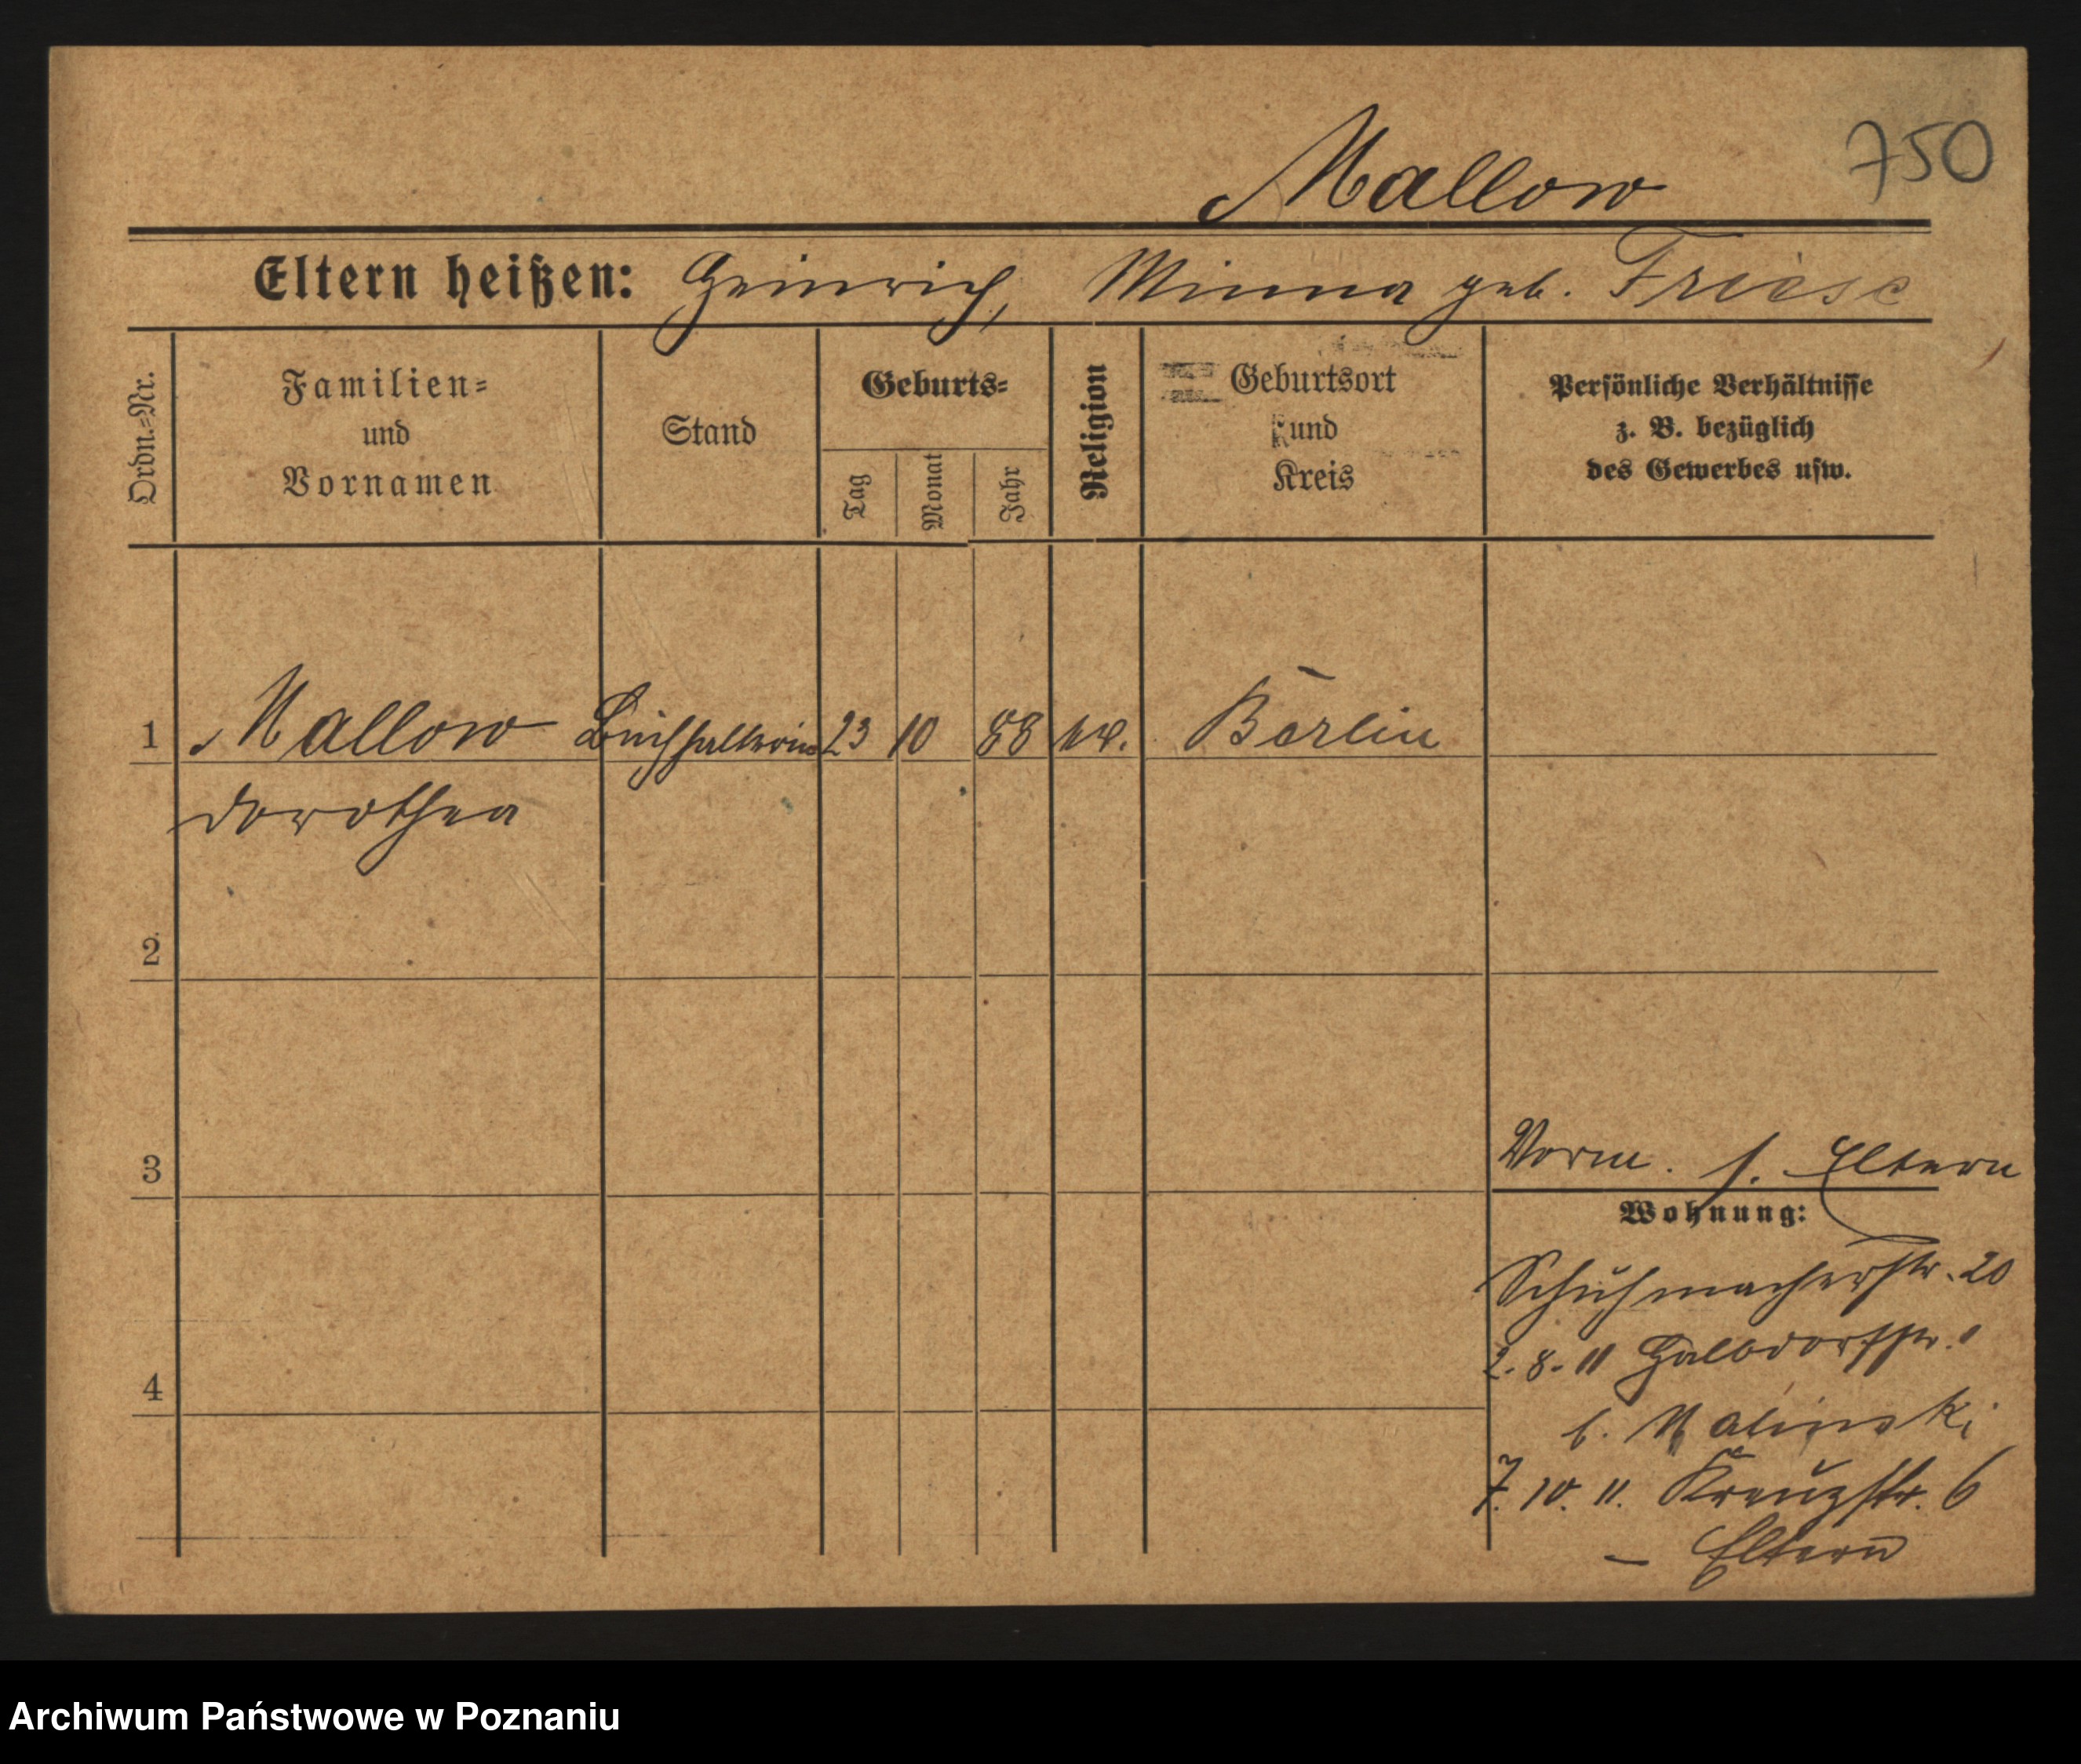 750
Mallow
Eltern heißen: Heinrich, Minna geb. Friese
Ordn.-Nr.
Familien-
und
Vornamen
Stand
Geburts-
Tag
Monat
Jahr
Religion
Geburtsort
und
Kreis
Persönliche Verhältnisse
z. B. bezüglich
des Gewerbes usw.
1 Mallow Buchhalterin 23 10 88 ev. Berlin
Dorothea
2
3
Vorm. s. Eltern
Wohnung:
Schuhmacherstr. 20
2.8.11 Halbdorfstr. 1
b. Malinski
4
7.10.11. Kreuzstr. 6
– Eltern
Archiwum Państwowe w Poznaniu